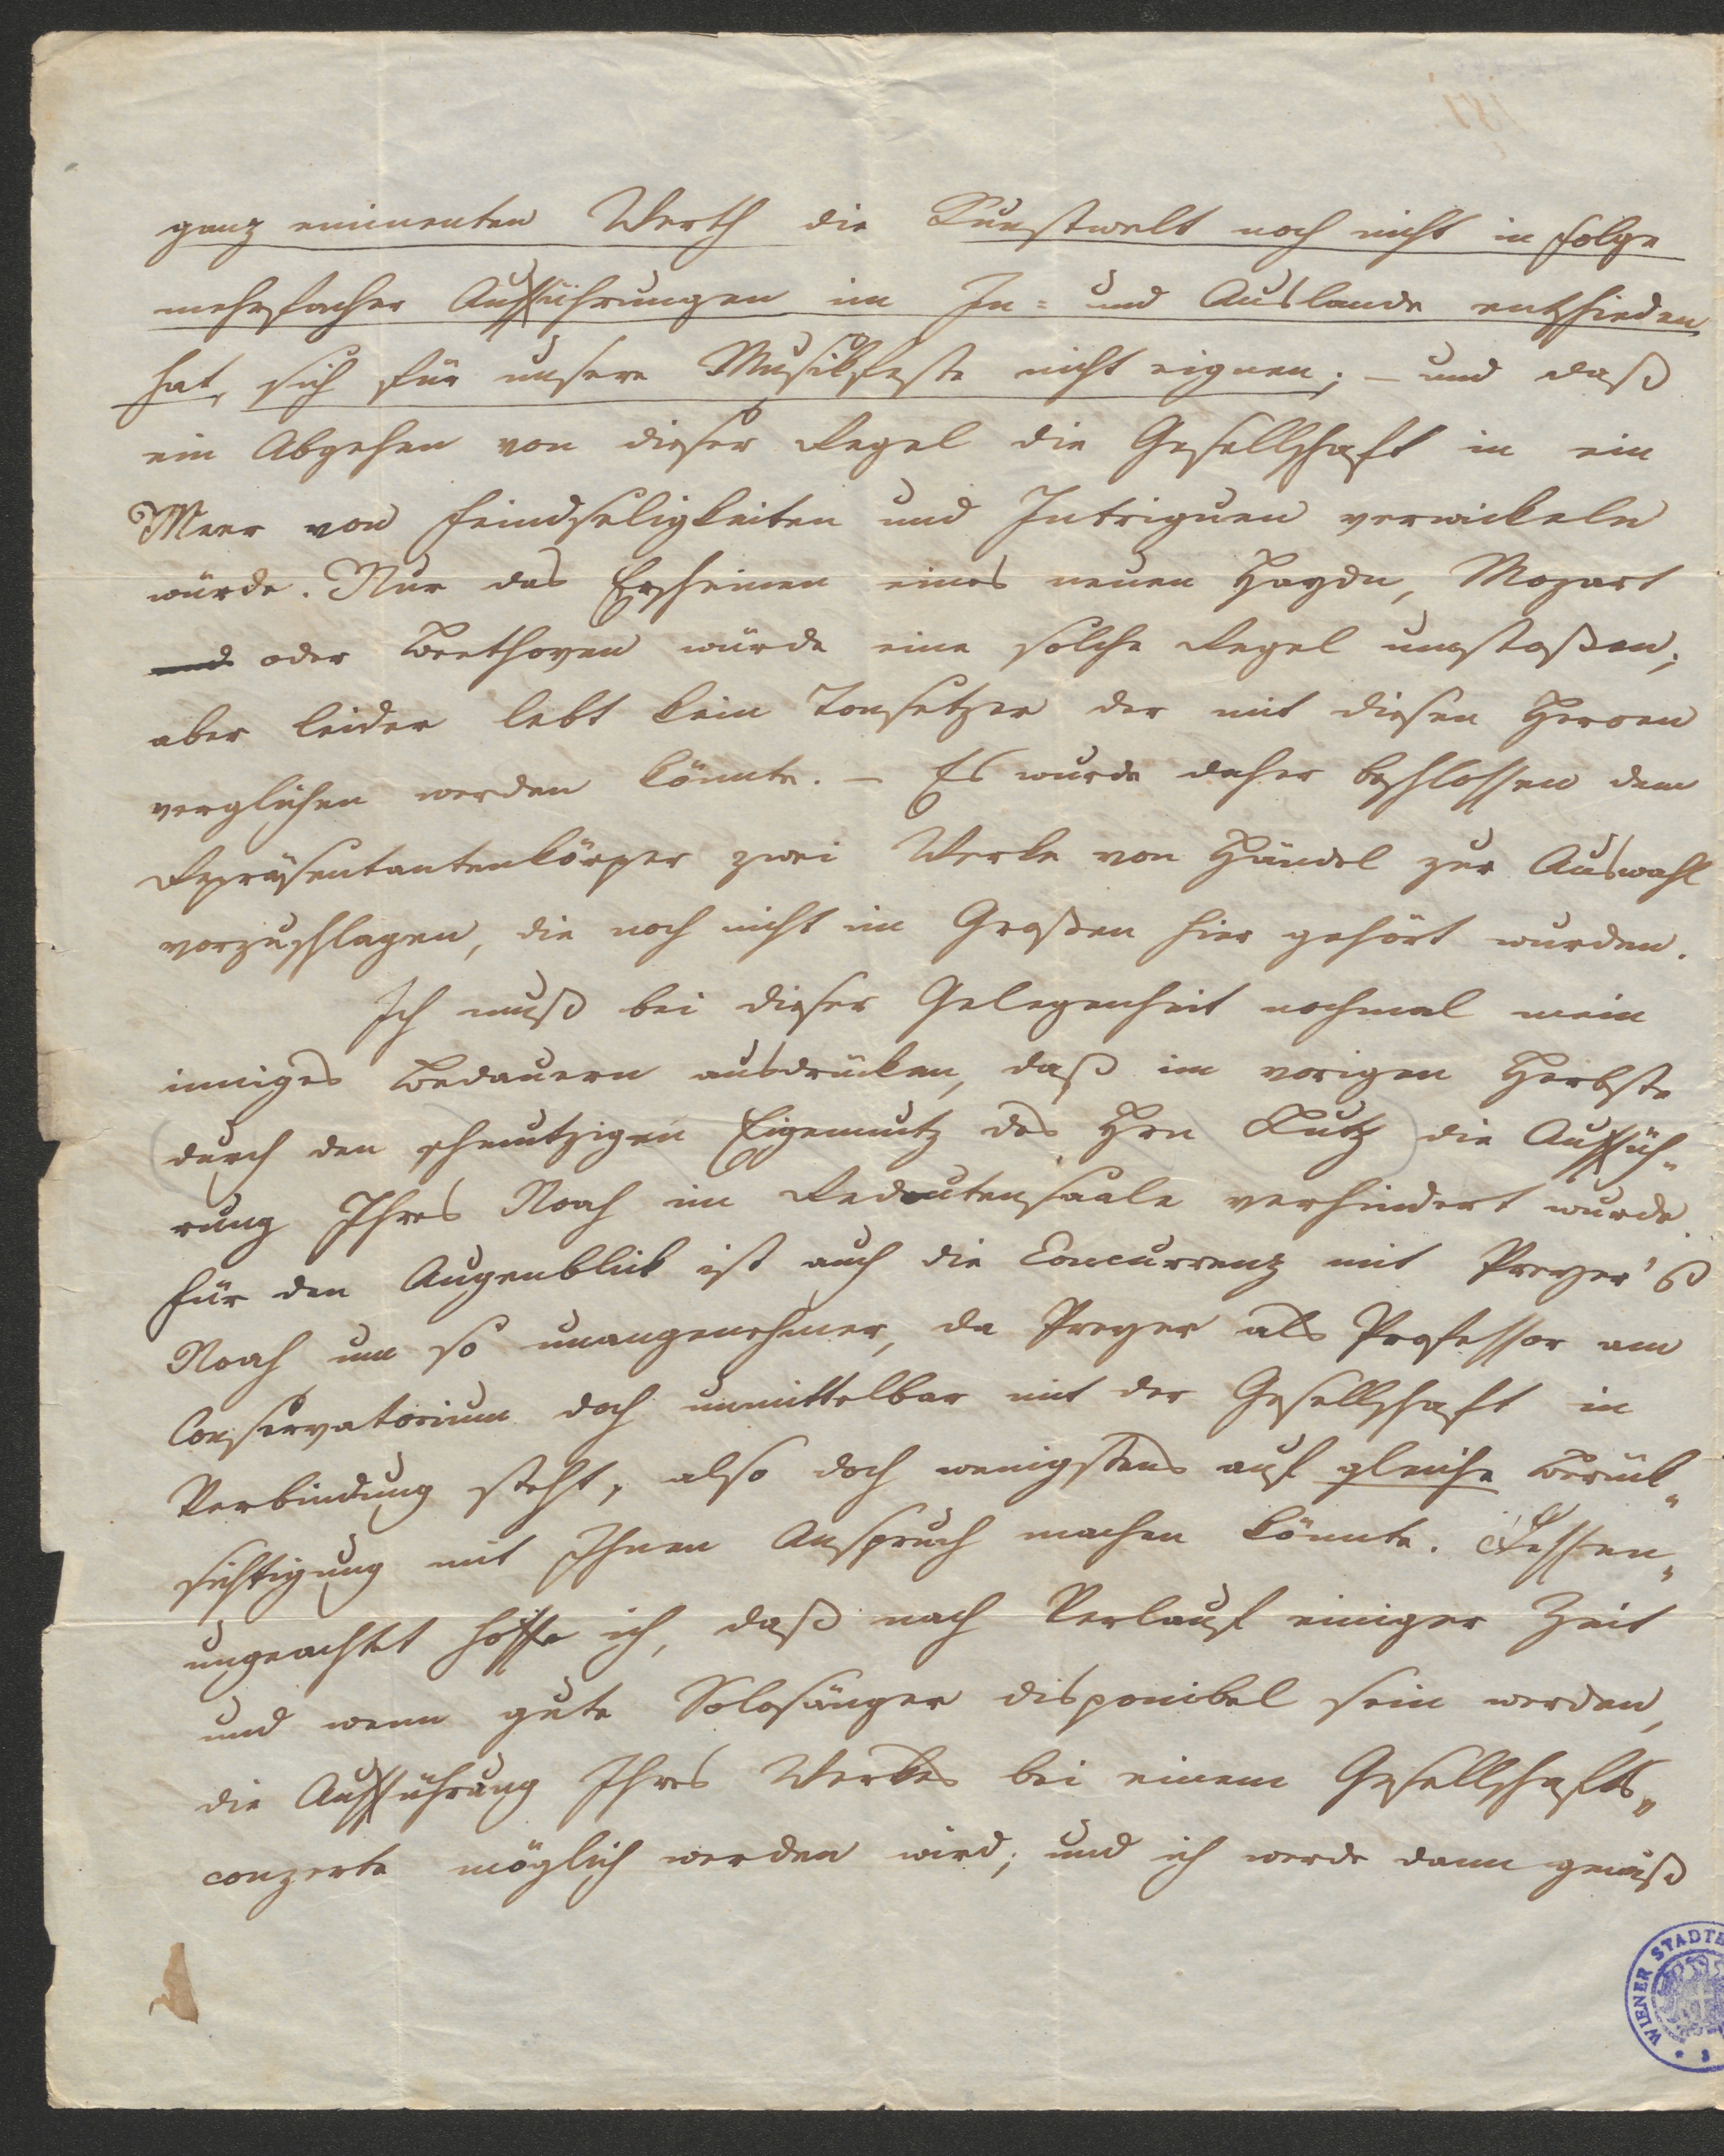 ganz eminenten Werth die Kunstwelt noch nicht in Folge
mehrfacher Aufführungen im In= und Auslande entschieden
hat, sich für unsere Musikfeste nicht eignen; – und daß
ein Abgehen von dieser Regel die Gesellschaft in ein
Meer von Feindseligkeiten und Intriguen verwickeln
würde. Nur das Erscheinen eines neuen Haydn, Mozart
und oder Beethoven würde eine solche Regel umstoßen;
aber leider lebt kein Tonsetzer der mit diesen Heroen
verglichen werden könnte. – Es wurde daher beschlossen dem
Repräsentantenkörper zwei Werke von Händel zur Auswahl
vorzuschlagen, die noch nicht im Großen hier gehört wurden.
Ich muß bei dieser Gelegenheit nochmal mein
inniges Bedauern ausdrücken, daß im vorigen Herbste
(durch den schmutzigen Eigennutz des Hrn Kutz) die Auffüh„
rung Ihres Noah im Redoutensaale verhindert wurde.
Für den Augenblick ist auch die Concurrenz mit Preyer's
Noah um so unangenehmer, da Preyer als Professor am
Conservatorium doch unmittelbar mit der Gesellschaft in
Verbindung steht, also doch wenigstens auf gleiche Berück„
sichtigung mit Ihnen Anspruch machen könnte. Dessen„
ungeachtet hoffe ich, daß nach Verlauf einiger Zeit
und wenn gute Solosänger disponibel sein werden,
die Aufführung Ihres Werkes bei einem Gesellschafts„
conzerte möglich werden wird; und ich werde dann gewiß
WIENER STADTB